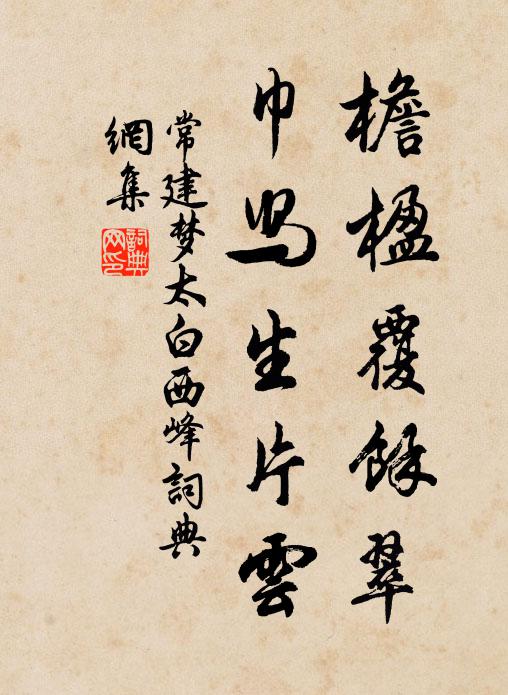 檐楹覆餘翠
巾舄生片雲
常建梦太白西峰詞典
網集
詞典
网印